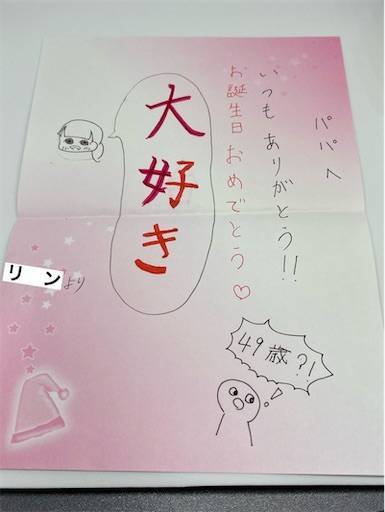 パパへ
いつもありがとう!!
お誕生日おめでとう♡
大好き
リンより
49歳?!